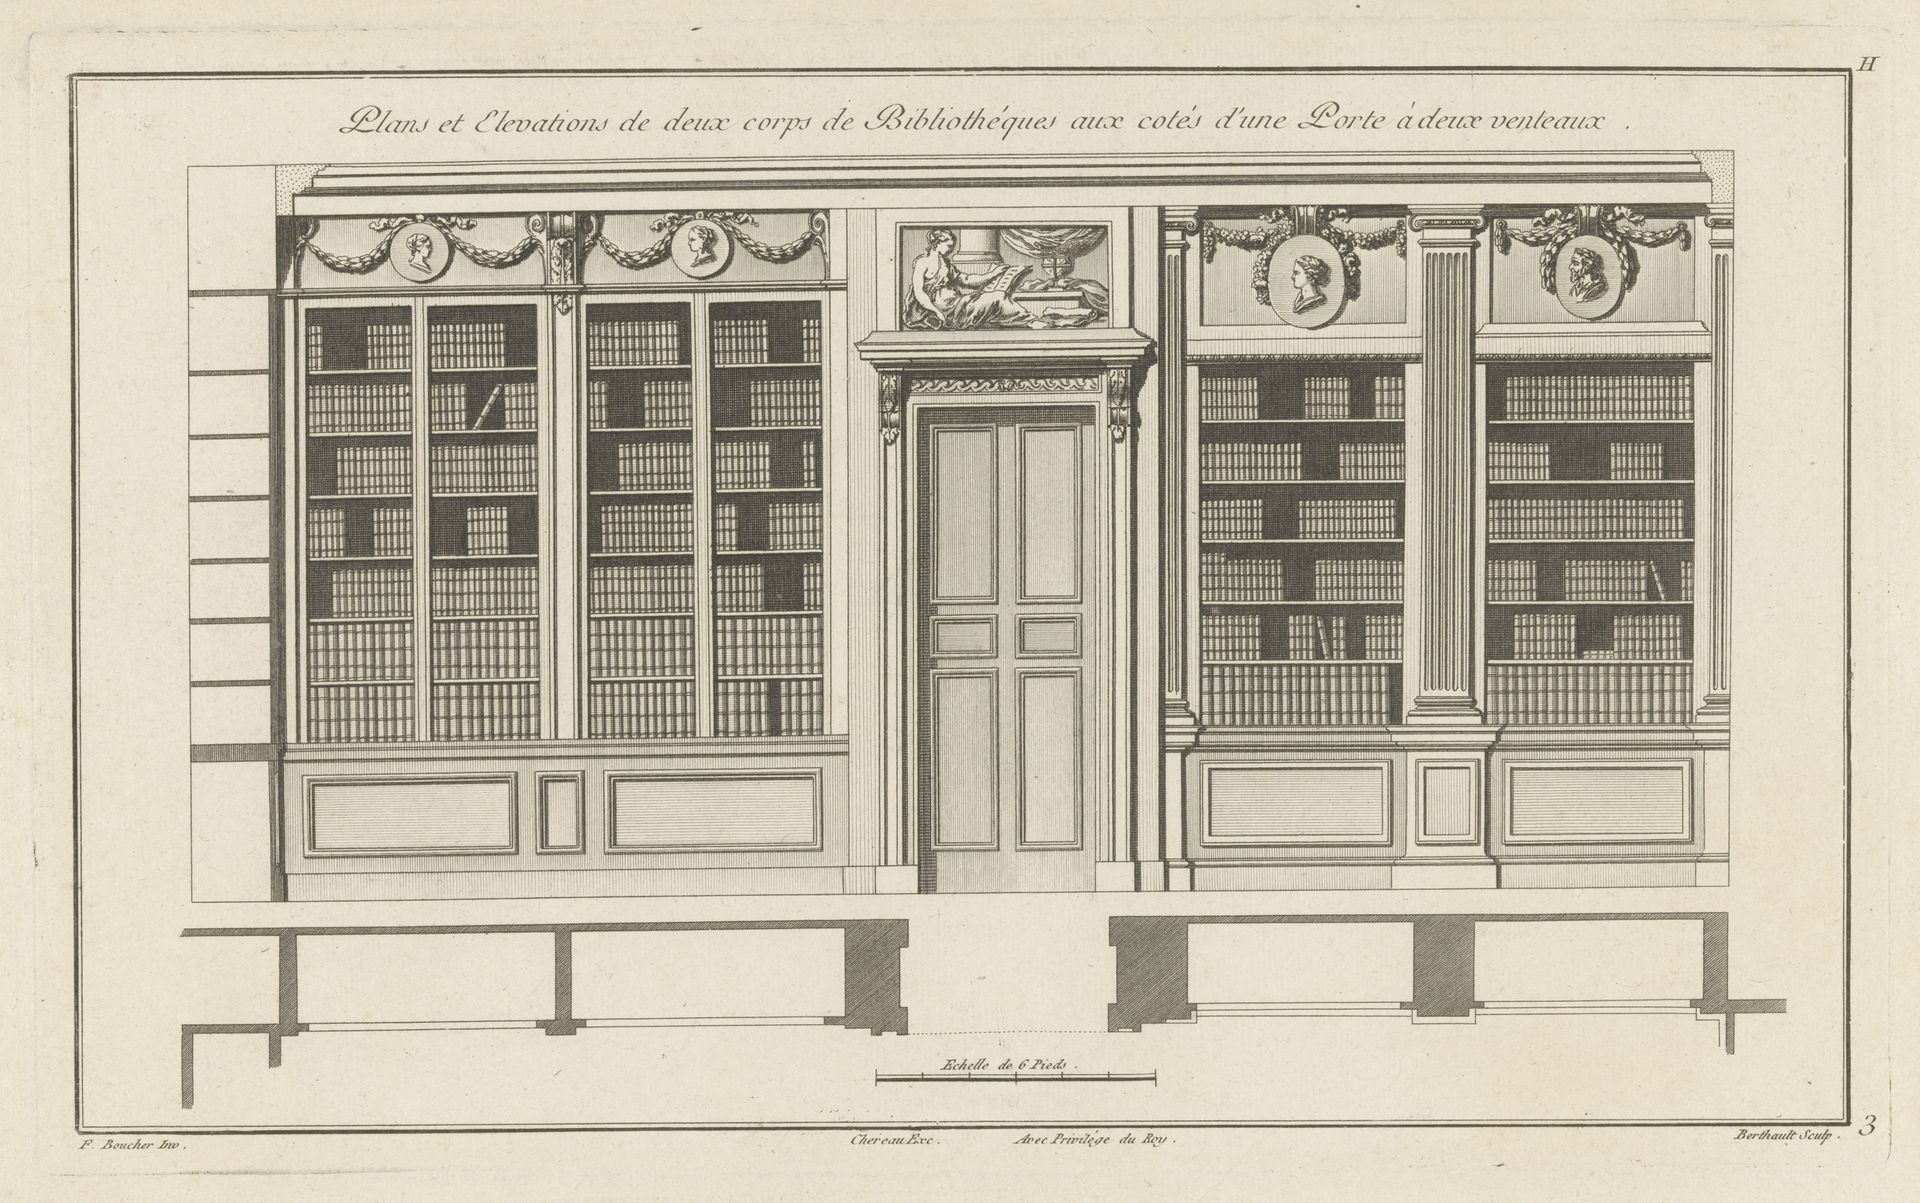 H
Plans et Elevations de deux corps de Bibliothéques aux cotés d'une Porte à deux venteaux .
Echelle de 6 Pieds .
F. Boucher Inv .
Chereau Exc .
Avec Privilége du Roy .
Berthault Sculp .
3